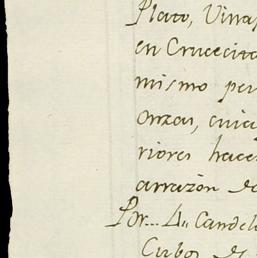 Plato, Vina
en Crucecita
mismo per
onzas, cuia
riores hace
arrazón de
Por... 4.. Candele
Cubos de